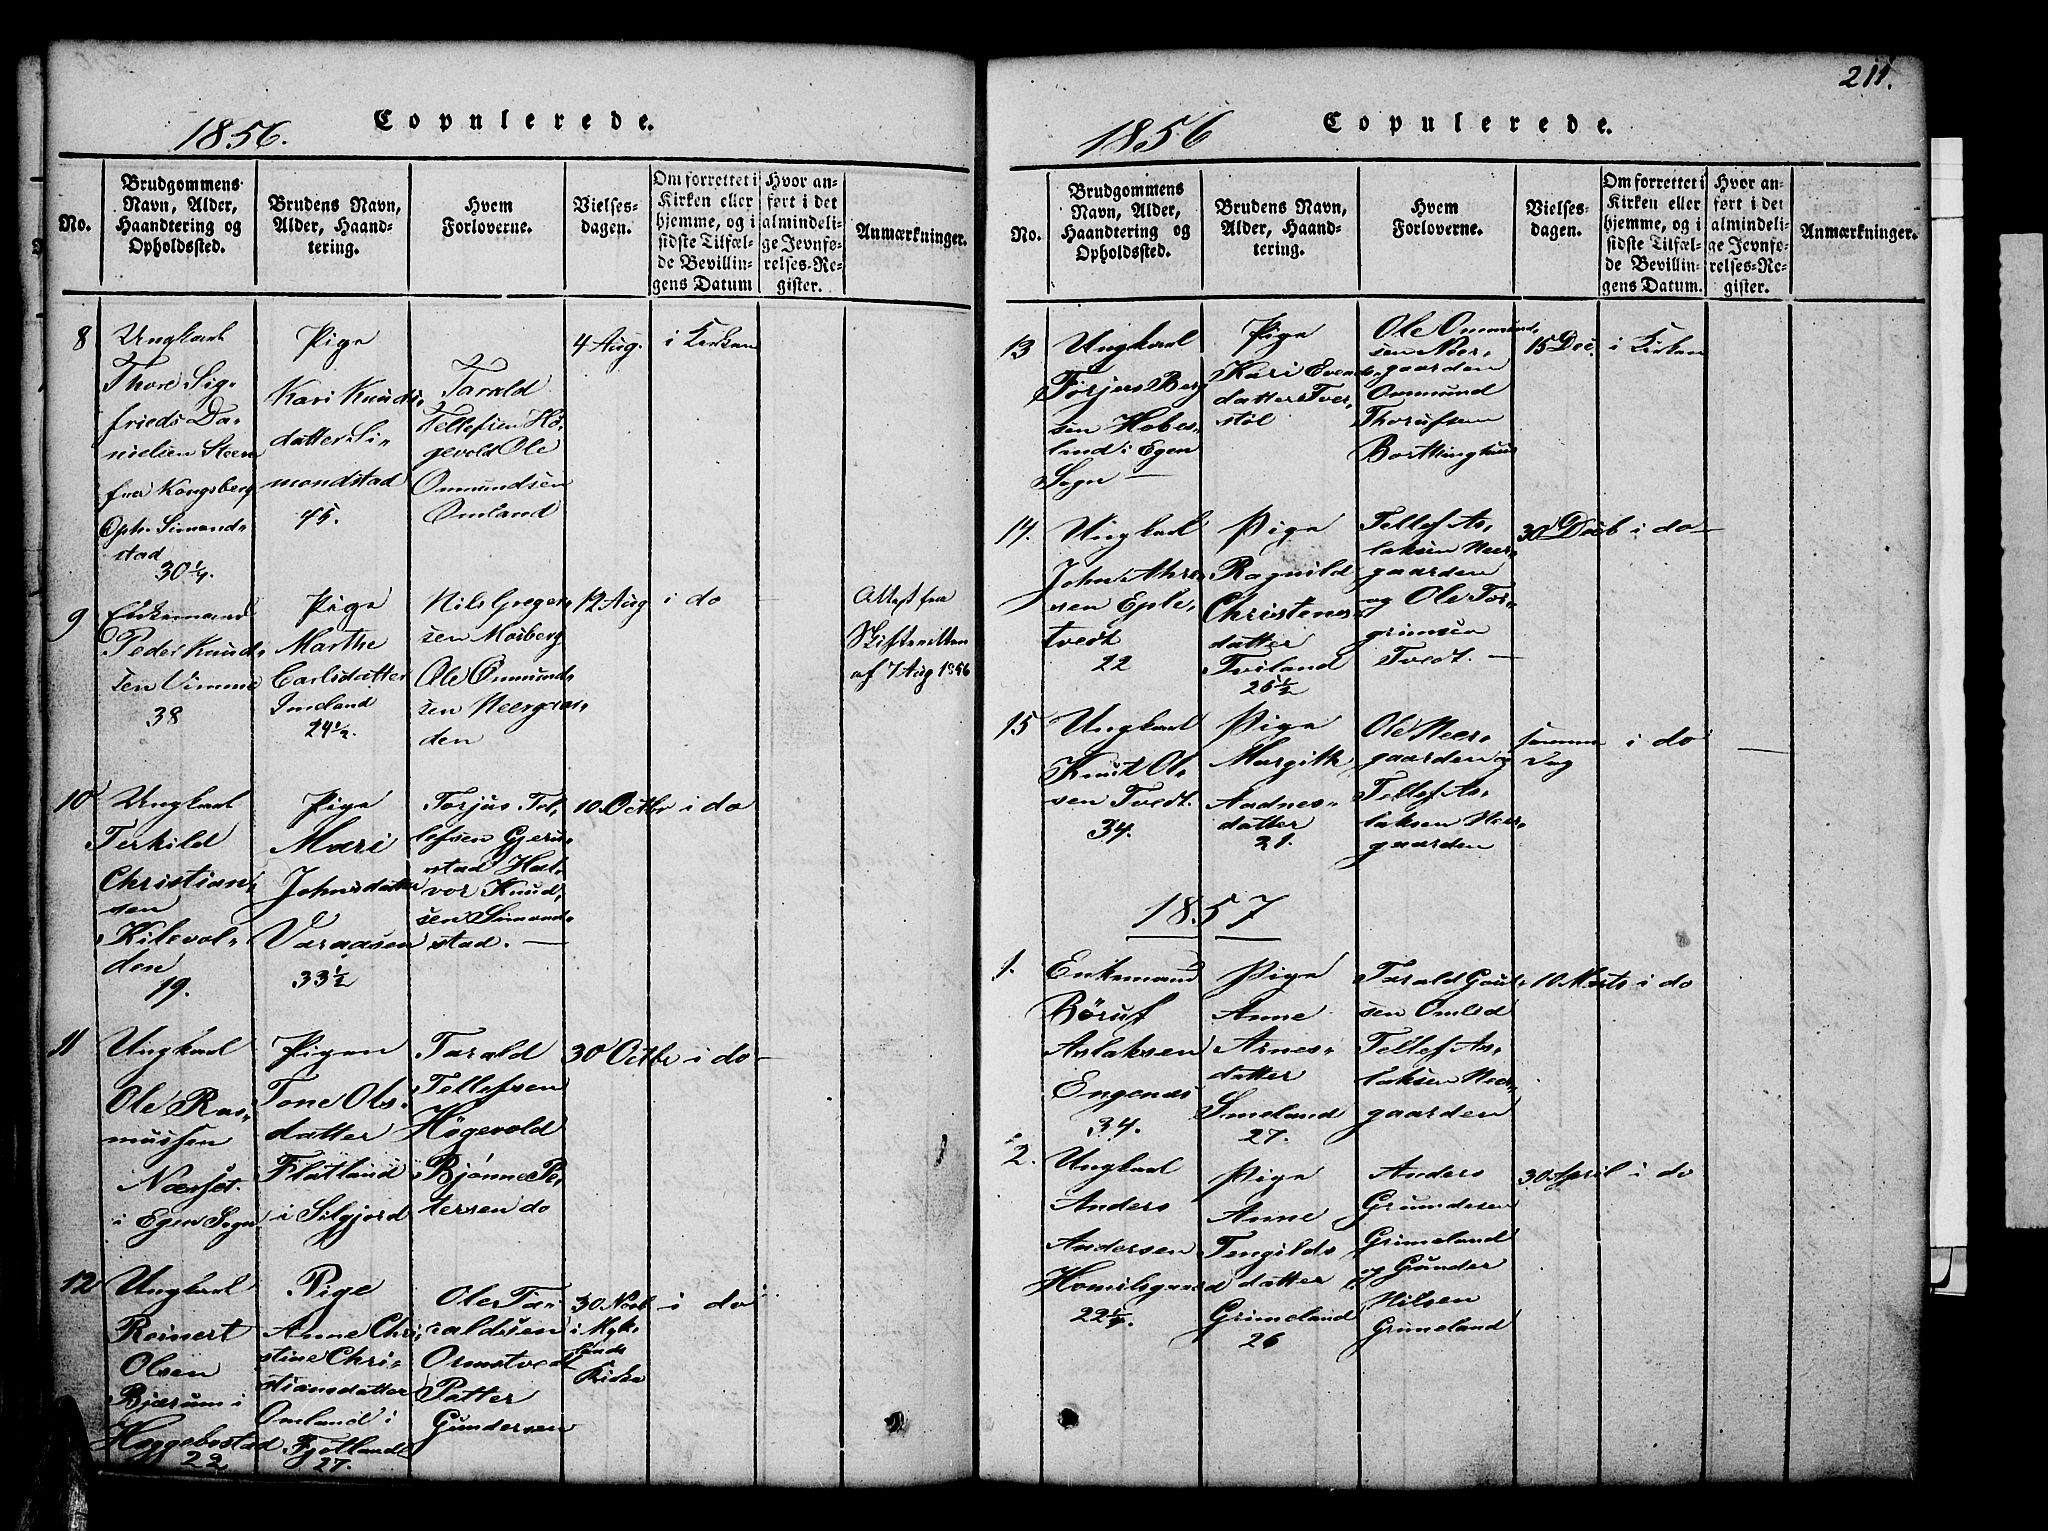 211.
1856.
Copulerede.
No.
Brudgommens
Navn, Alder,
Haandtering og
Opholdssted.
Brudens Navn,
Alder, Haand-
tering.
Hvem
Forloverne.
Vielses-
dagen.
Om forrettet i
Kirken eller
hjemme, og i
sidste Tilfæl-
de Bevillin-
gens Datum
Hvor an-
ført i det
almindeli-
ge Jevnfø-
relses-Re-
gister.
Anmærkninger.
8
Ungkarl
Thore Sig-
frieds Da-
nielsen Steen
fra Kongsberg
Oph. Simonds-
stad
30 1/4.
Pige
Kari Knuds-
datter Si-
mondstad
45.
Tarald
Tellefsen Hø-
gevold Ole
Ommundsen
Omland
4 Aug.
i Kirken
9
Enkemand
Peder Knud-
sen Vimme
38
Pige
Marthe
Carlsdatter
Imeland
24 1/2.
Nils Greger-
sen Mosberg
Ole Ommund-
sen Neergaar-
den
12 Aug
i do
Attest fra
Skifteretten
af 7 Aug 1856
10
Ungkarl
Terkild
Christian-
sen
Kilevol-
den
19.
Pige
Mari
Johnsdatter
Varaasen
33 1/2
Torjus Tel-
lefsen Gjeru-
stad Hal-
vor Knud-
sen Simond-
stad.
10 Octbr
i do
11
Ungkarl
Ole Ras-
mussen
Næsset
i Egen Sogn
Pigen
Tone Ols-
datter
Flatland
i Silgjord
Tarald
Tellefsen
Høgevold
Bjønne Pe-
tersen do
30 Octbr
i do
12
Ungkarl
Reinert
Olsen
Bjærum i
Hæggebostad
22
Pige
Anne Chri-
stine Chri-
stiansdatter
Omland i
Fjotland
27.
Ole Ta-
raldsen
Ormstvedt
Petter
Gundersen
30 Novb
i Myk-
lands
Kirke
i do
1856
Copulerede.
No.
Brudgommens
Navn, Alder,
Haandtering og
Opholdssted.
Brudens Navn,
Alder, Haand-
tering.
Hvem
Forloverne.
Vielses-
dagen.
Om forrettet i
Kirken eller
hjemme, og i
sidste Tilfæl-
de Bevillin-
gens Datum.
Hvor an-
ført i det
almindeli-
ge Jevnfø-
relses-Re-
gister.
Anmærkninger.
13
Ungkarl
Torjers Berg
sen Hobes-
land i Egen
Sogn
Pige
Kari Evends-
datter Tver-
støl
Ole Ommund-
sen Neer-
gaarden
Ommund
Thorufsen
15 Dec.
i Kirken
14
Ungkarl
John
sen Eple-
tvedt
22
Pige
Ragnild
Christens-
datter
Tviland
25 1/2
Tellef As-
laksen Neer-
gaarden
og Ole Tor-
grimsen
Tvedt.
30 Decb
i do
15
Ungkarl
Knut Ol-
sen Tvedt.
34.
Pige
Margith
Aadnes-
datter
21.
Ole Neer-
gaarden og
Tellef As-
laksen Neer-
gaarden
samme
Dag
i do
1857
1.
Enkemand
Børuf
Aslaksen
Engenæs
34.
Pige
Anne
Arnes-
datter
Imeland
27.
Tarald
sen Omlid
Tellef As-
laksen Neer-
gaarden
10 Marts
i do
2.
Ungkarl
Anders
Andersen
Homilsgaard
22 1/4.
Pige
Anne
Tengilds
datter
Grimeland
26
Anders
Grundesen
Grimeland
og Gunder
Nilsen
Grimeland
30 April
i do